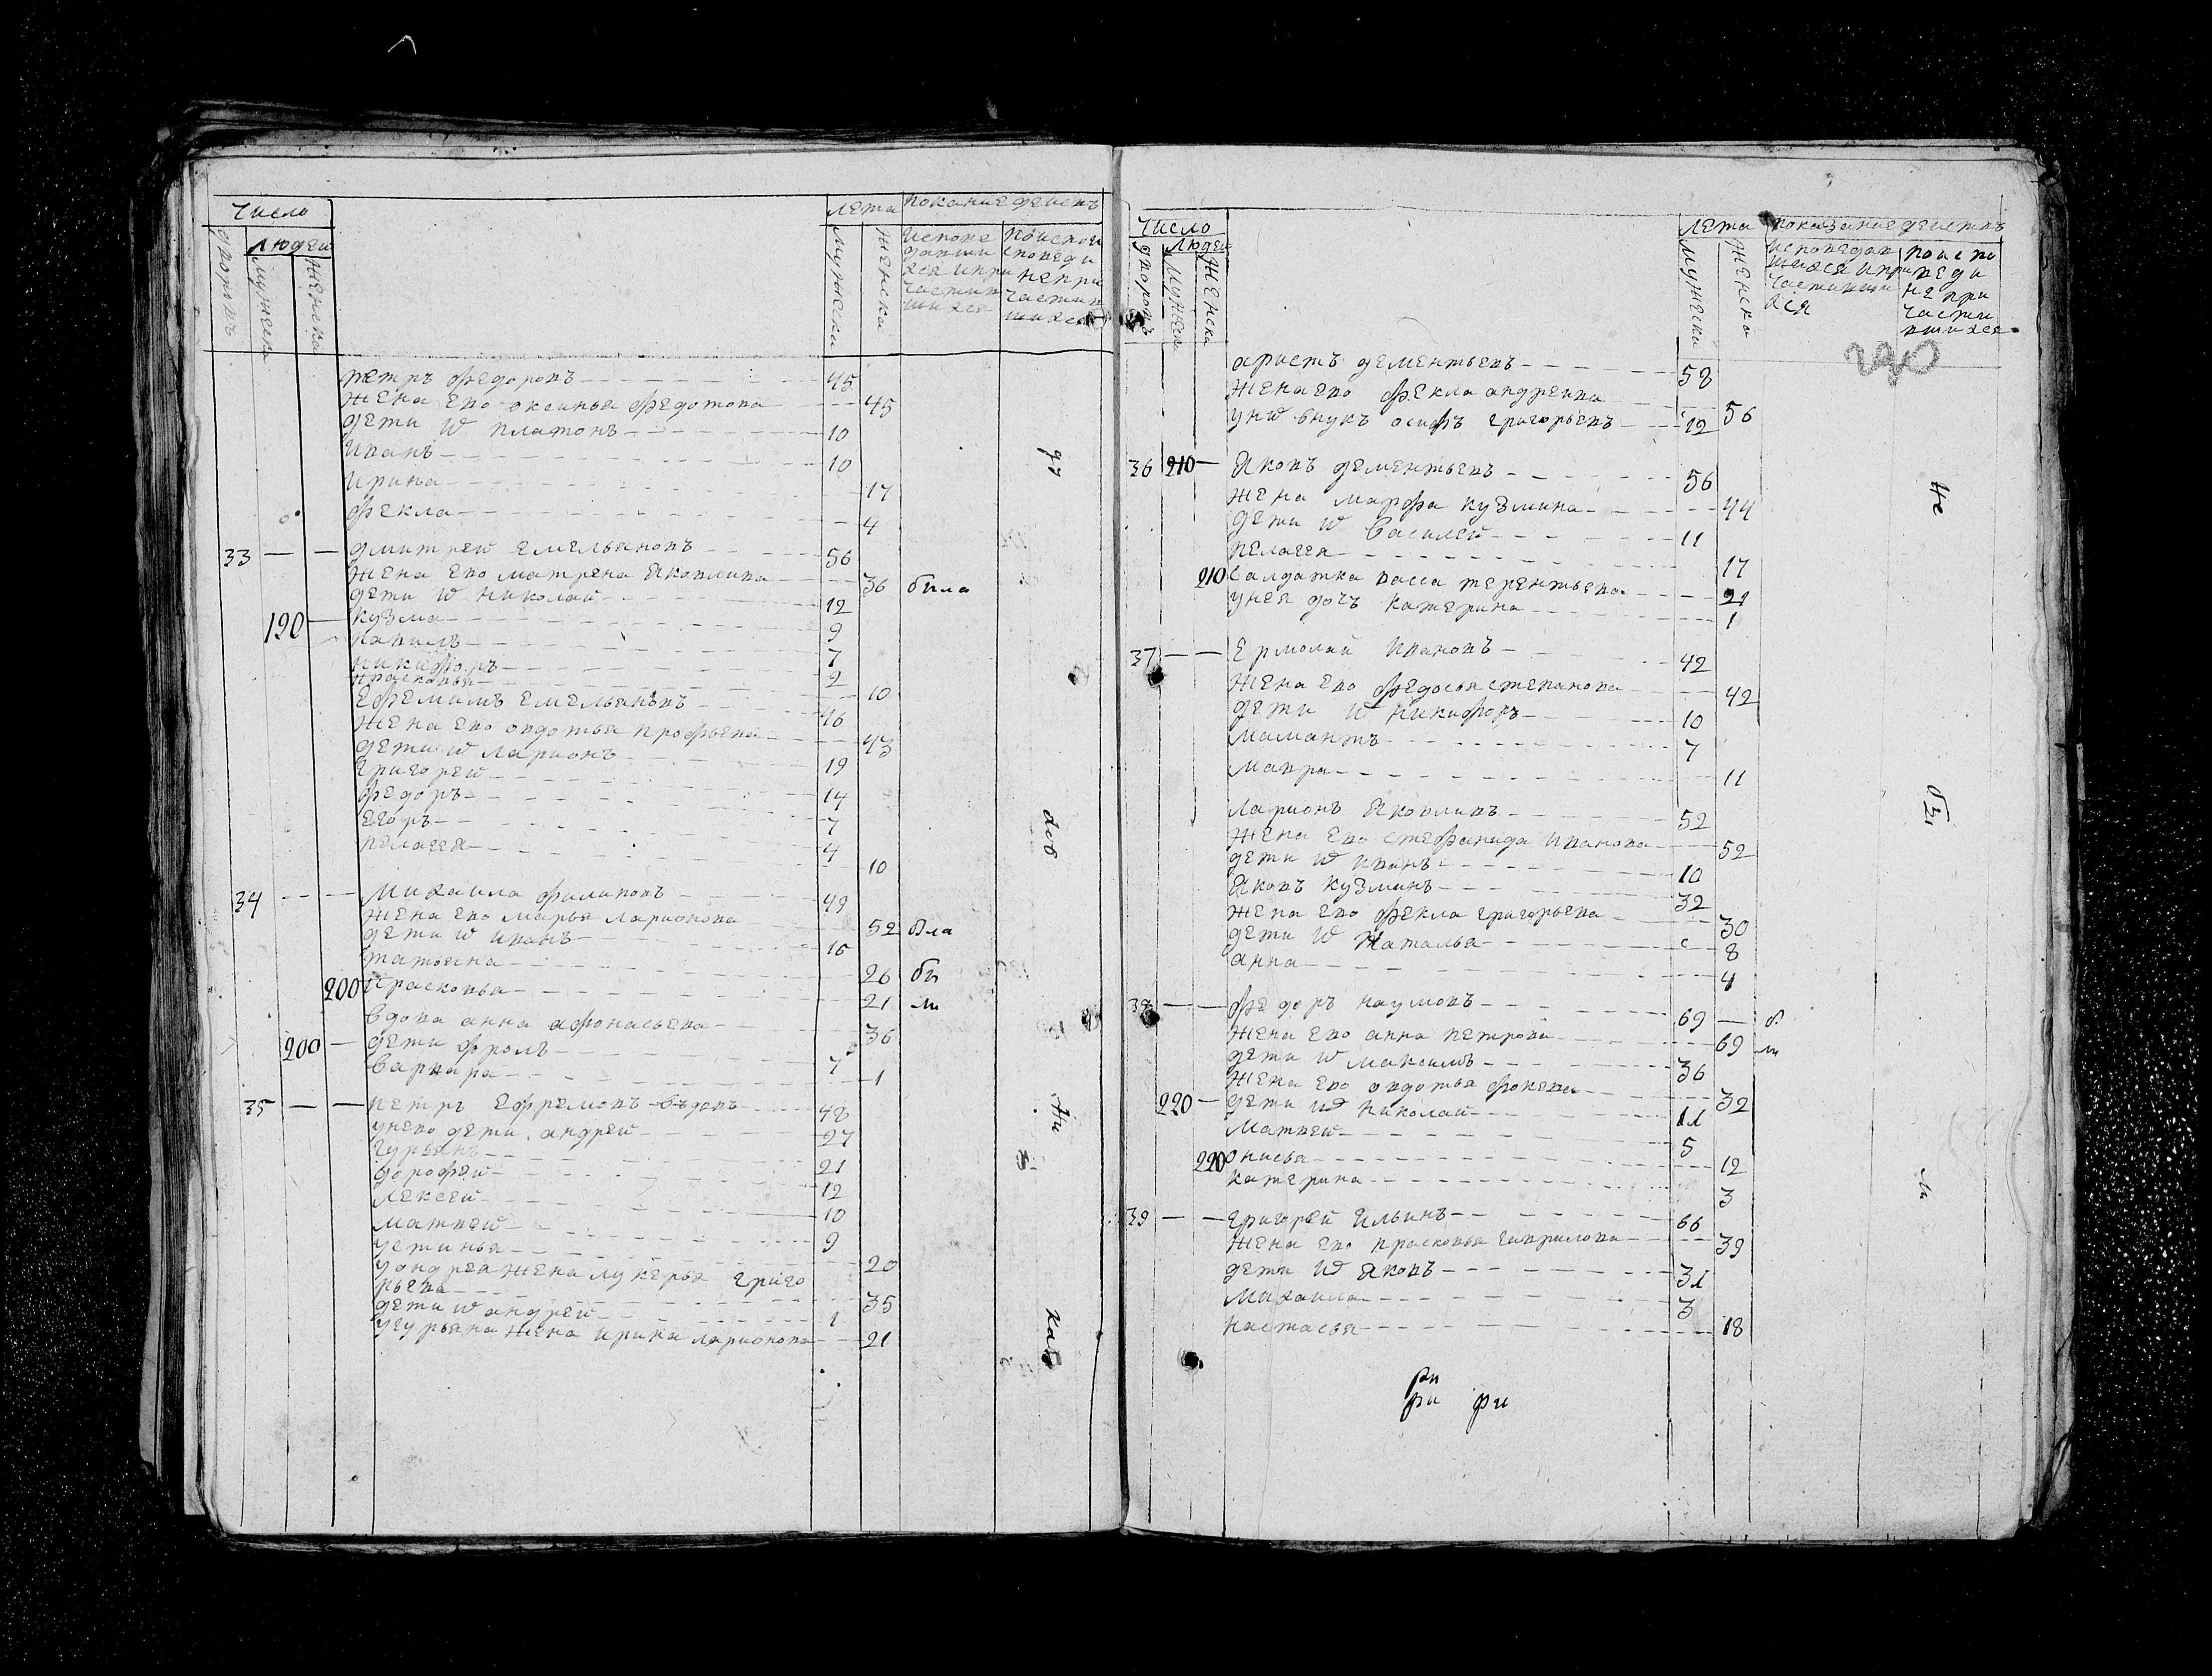 Число
людей
дворовъ
мужеска
женска
лета
мужеска
женска
покание действъ
исповедавши
хся и при
частив
шихся
по испо
споведи
не при
частив
шихся
петръ федоровъ 45
жена ево оксинья федотова 45
дети ихъ платонъ 10
иванъ 10
ирина 17
фекла 4
33 дмитрей емельяновъ 56
жена ево матрена яковлива 36 была
дети ихъ николай 12
190 кузма 9
данилъ 7
никифоръ 2
прасковья 10
ефремимъ емельянввъ 46
жена ево овдотья профьева 43
дети ихъ ларионъ 19
григорей 14
федоръ 7
егоръ 4
пелагея 10
34 михаила филиповъ 49
жена ево марья ларионова 52 бла
дети ихъ иванъ 16
татьяна 26 бы
200 прасковья 21 ли
вдова анна афонасьева 36
200 дети фролъ 7
варвара 1
35 петръ ефремовъ въдовъ 48
у нево дети андрей 27
гурьянъ 21
дорофей 12
лексей 10
матвей 9
устинья 20
у андрея жена лукерья григо
рьева 35
дети ихъ андрей 1
у гурьяна жена ирина ларионова 21
ду
хов
ни
каѣ
Число
людей
дворовъ
мужеска
женска
лета
мужеска
женска
показание действъ
исповедав
шихся и при
частивши
хся
по испо
веди
не при
части
вшихся
290
аристъ дементьевъ 58
жена ево фекла андреива 56
у них внукъ осифъ григорьевъ 12
36 210 яковъ дементьевъ 56
жена марфа кузмина 44
дети ихъ василей 11
пелагея 17
210 салдатка васса терентьева 21
у нея дочъ катерина 1
37 ермолай ивановъ 42
жена ево федосья степанова 42
дети ихъ никифоръ 10
мамантъ 7
мавра 11
ларионъ яковливъ 52
жена ево стефанида иванова 52
дети ихъ иванъ 10
яковъ кузминъ 32
жена ево фекла григорьева 30
дети ихъ наталья 8
анна 4
38 федоръ наумовъ 69 б
жена ево анна петрова 69 ли
дети ихъ максимъ 36
жена ево овдотья фокева 32
220 дети ихъ николай 11
матвей 5
220 онисья 12
катерина 3
39 григорей ильинъ 66
жена ево прасковья гаврилова 39
дети ихъ яковъ 31
михаила 3
настасья 18
не
бы
ли
ри
ри ри